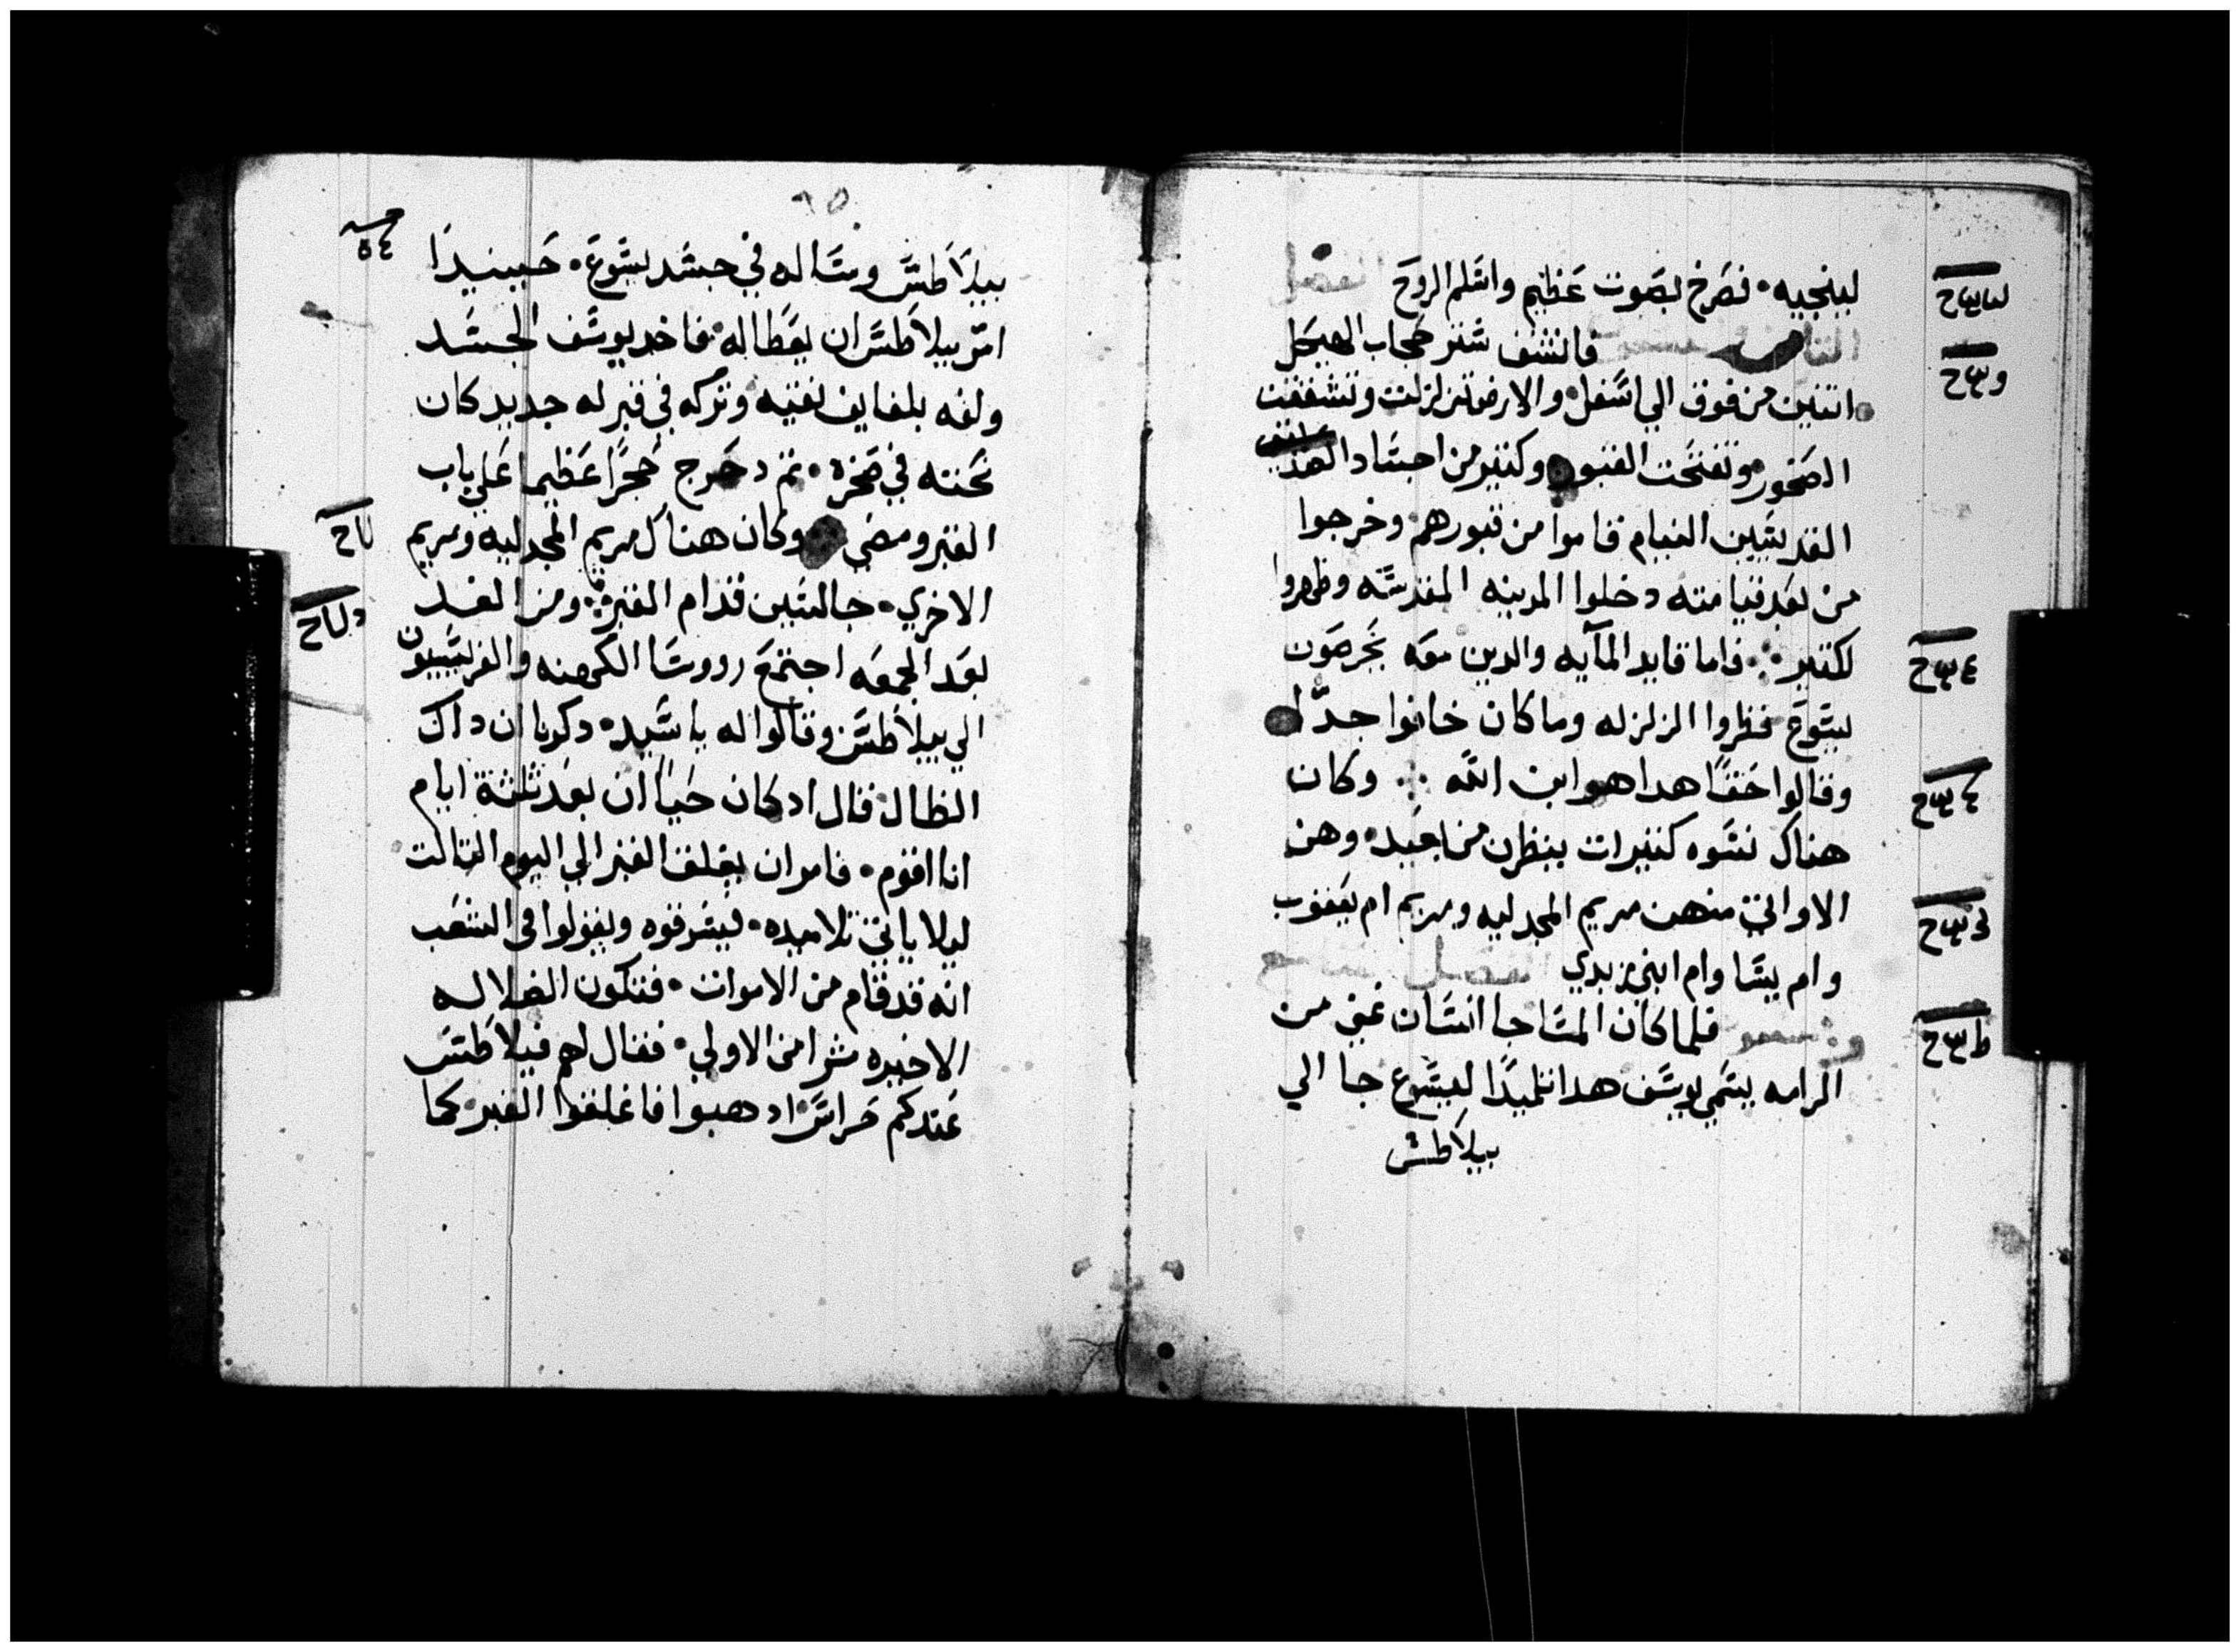 لينجيه • فصرخ بصوت عظيم واسلم الروح الفصل
الثامن فانشف ستر حجاب الهيكل
اتنين من فوق الي اسفل • والارض تزلزلت وتشققت
الصخور • وتفتحت القبور • وكتير من اجساد
القديسين النيام قاموا من قبورهم • وخرجوا
من بعد قيامته دخلوا المدينه المقدسه وظهروا
لكتير ∴ فاما قايد المايه والدين معه يحرصون
يسوع فنظروا الزلزله وما كان خافوا جدا
وقالوا حقا هدا هو ابن الله ∴ وكان
هناك نسوه كتيرات ينظرن من بعيد • وهن
الاواتي منهن مريم المجدليه ومريم ام يعقوب
وام يسا وام ابني زبدي الفصل
فلما كان المسا جا انسان غني من
الرامه يسمي يوسف هدا تلميدا ليسوع جا الي
بيلاطس
بيلاطس وساله في جسد يسوع • حينيدا
امر بيلاطس ان يعطا له • فاخد يوسف الجسد
ولفه بلفايف نقيه وتركه في قبر له جديد كان
نحته في صخره • تم دحرج حجرا عظيما علي باب
القبر ومضي • وكان هناك مريم المجدليه ومريم
الاخري • جالستين قدام القبر • ومن الغد
بعد الجمعه اجتمع رووسا الكهنه والفريسيون
الي بيلاطس وقالوا له يا سيد • دكرنا ان داك
الظال قال اد كان حيا ان بعد تلتة ايام
انا اقوم • فامر ان يغلق القبر الي اليوم التالت
ليلا ياتي تلاميده • فيسرقوه ويقولوا في الشعب
انه قد قام من الاموات • فتكون الضلاله
الاخيره شرا من الاولي • فقال لهم فيلاطس
عندكم حراس ادهبوا فاغلقوا القبر كما